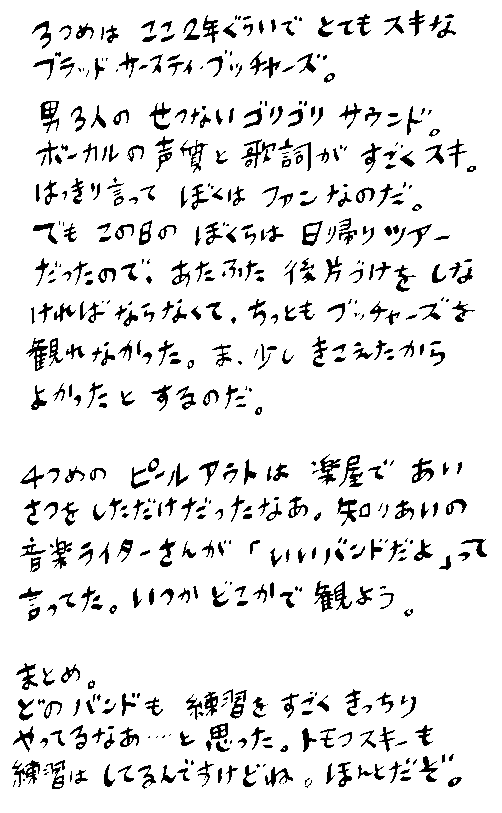 3つめは ここ2年ぐらいで とても スキな
ブラッド・サースティ・ブッチャーズ。
男3人の せつないゴリゴリ サウンド。
ボーカルの声質と歌詞が すごくスキ。
はっきり言って ぼくは ファンなのだ。
でも この日の ぼくらは 日帰りツアー
だったので、あたふた 後片づけを しな
ければならなくて、ちっとも ブッチャーズを
観れなかった。ま、少し きこえたから
よかったと するのだ。
4つめの ピールアウトは 楽屋で あい
さつを しただけだったなあ。知りあいの
音楽ライターさんが「いいバンドだよ」って
言ってた。いつか どこかで 観よう。
まとめ。
どのバンドも 練習を すごく きっちり
やってるなあ…と 思った。トモフスキーも
練習は してるんですけどね。ほんとだぞ。